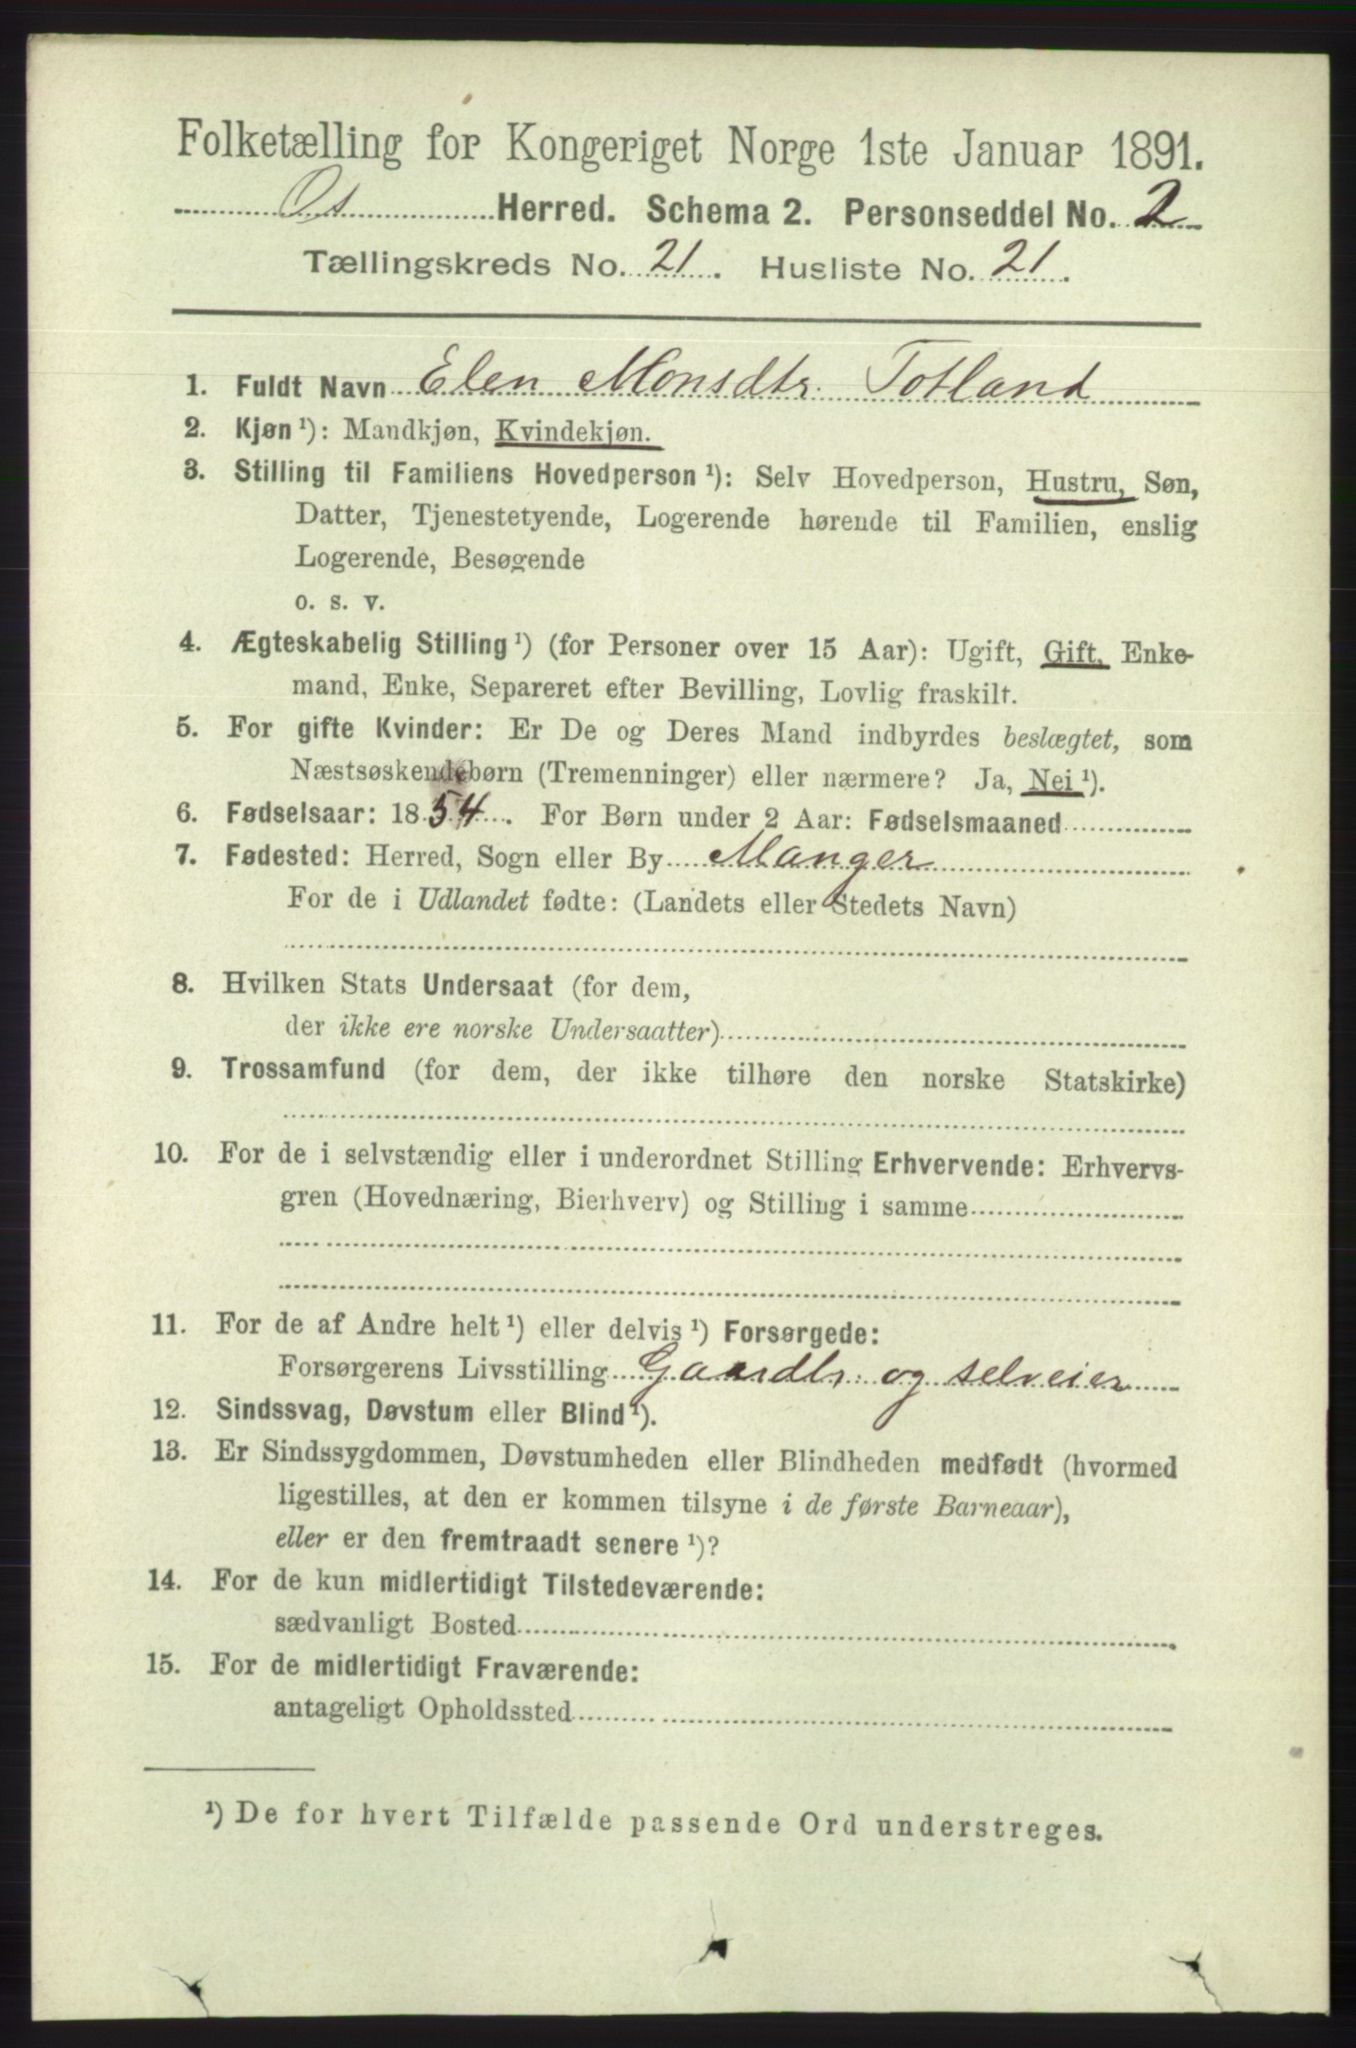 Folketælling for Kongeriget Norge 1ste Januar 1891.
Os Herred. Schema 2. Personseddel No. 2
Tællingskreds No. 21. Husliste No. 21.
1. Fuldt Navn Elen Monsdtr. Totland
2. Kjøn ¹): Mandkjøn, Kvindekjøn.
3. Stilling til Familiens Hovedperson ¹): Selv Hovedperson, Hustru, Søn,
Datter, Tjenestetyende, Logerende hørende til Familien, enslig
Logerende, Besøgende
o. s. v.
4. Ægteskabelig Stilling ¹) (for Personer over 15 Aar): Ugift, Gift, Enke-
mand, Enke, Separeret efter Bevilling, Lovlig fraskilt.
5. For gifte Kvinder: Er De og Deres Mand indbyrdes beslægtet, som
Næstsøskendebørn (Tremenninger) eller nærmere? Ja, Nei ¹).
6. Fødselsaar: 1854. For Børn under 2 Aar: Fødselsmaaned
7. Fødested: Herred, Sogn eller By Manger
For de i Udlandet fødte: (Landets eller Stedets Navn)
8. Hvilken Stats Undersaat (for dem,
der ikke ere norske Undersaatter)
9. Trossamfund (for dem, der ikke tilhøre den norske Statskirke)
10. For de i selvstændig eller i underordnet Stilling Erhvervende: Erhvervs-
gren (Hovednæring, Bierhverv) og Stilling i samme
11. For de af Andre helt ¹) eller delvis ¹) Forsørgede:
Forsørgerens Livsstilling Gaardbr. og selveier
12. Sindssvag, Døvstum eller Blind ¹).
13. Er Sindssygdommen, Døvstumheden eller Blindheden medfødt (hvormed
ligestilles, at den er kommen tilsyne i de første Barneaar),
eller er den fremtraadt senere ¹)?
14. For de kun midlertidigt Tilstedeværende:
sædvanligt Bosted
15. For de midlertidigt Fraværende:
antageligt Opholdssted
¹) De for hvert Tilfælde passende Ord understreges.